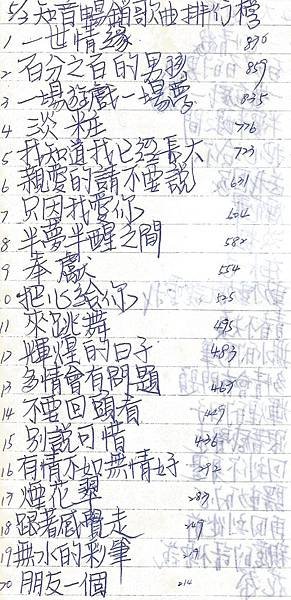 5/3 知音暢銷歌曲排行榜
1 一世情緣 896
2 百分之百的男孩 859
3 一場遊戲一場夢 835
4 淡粧 776
5 我知道我已經長大 723
6 親愛的請不要說 631
7 只因我愛你 604
8 半夢半醒之間 582
9 奉獻 554
0 把心給你 535
11 來跳舞 495
12 輝煌的日子 483
13 多情會有問題 469
14 不要回頭看 449
15 別說可惜 436
16 有情不如無情好 292
17 煙花翠 283
18 跟著感覺走 249
19 無水的彩筆
20 朋友一個 214